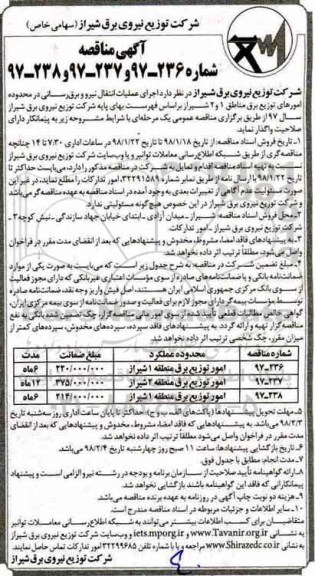 شرکت توزیع نیروی برق شیراز (سهامی خاص)
آگهی مناقصه
شماره ۲۳۶-۹۷ و ۲۳۷-۹۷ و ۲۳۸-۹۷
شرکت توزیع نیروی برق شیراز در نظر دارد اجرای عملیات انتقال نیرو و برق‌رسانی در محدوده
امورهای توزیع برق مناطق ۱ و ۲ شیراز براساس فهرست بهای پایه شرکت توزیع نیروی برق شیراز
سال ۹۷ از طریق برگزاری مناقصه عمومی یک مرحله‌ای با شرایط مشروحه زیر به پیمانکار دارای
صلاحیت واگذار نماید.
۱ـ تاریخ فروش اسناد مناقصه: از تاریخ ۹۸/۱/۱۸ تا ۹۸/۱/۲۲ در ساعات اداری ۷/۳۰ تا ۱۴ چنانچه
مناقصه‌گری از طریق شبکه اطلاع‌رسانی معاملات توانیر و یا وب‌سایت شرکت توزیع نیروی برق شیراز
نسبت به تهیه اسناد مناقصه اقدام و تمایل به شرکت در مناقصه مذکور را دارد، می‌بایست حداکثر تا
تاریخ ۹۸/۱/۲۲ با ارسال نامه از طریق نمابر شماره ۳۲۲۹۱۵۸۹، امور تدارکات را مطلع نماید، در غیر این
صورت مسئولیت عدم آگاهی از تغییرات بعدی به وجود آمده در اسناد مناقصه به عهده مناقصه‌گر می‌باشد
و شرکت توزیع نیروی برق شیراز در این خصوص هیچ‌گونه مسئولیتی ندارد.
۲ـ محل فروش اسناد مناقصه: شیراز ـ میدان آزادی ـ ابتدای خیابان جهاد سازندگی ـ نبش کوچه ۳ ـ
شرکت توزیع نیروی برق شیراز ـ امور تدارکات.
۳ـ به پیشنهادهای فاقد امضا، مشروط، مخدوش و پیشنهادهایی که بعد از انقضای مدت مقرر در فراخوان
واصل می‌شود، مطلقاً ترتیب اثر داده نخواهد شد.
۴ـ مبلغ تضمین شرکت در مناقصه به شرح جدول زیر است که می‌بایست به صورت یکی از موارد
ضمانت‌نامه بانکی و یا ضمانت‌نامه‌های صادره از سوی مؤسسات اعتباری غیربانکی که دارای مجوز فعالیت
از سوی بانک مرکزی جمهوری اسلامی ایران هستند، اصل فیش واریز وجه نقد، ضمانت‌نامه صادره
توسط مؤسسات بیمه‌گر دارای مجوز لازم برای فعالیت و صدور ضمانت‌نامه از سوی بیمه مرکزی ایران،
گواهی خالص مطالبات قطعی تأیید شده از سوی امور مالی مناقصه‌گزار، چک تضمین شده بانکی به نفع
مناقصه‌گزار تهیه و ارائه گردد. به پیشنهادهای فاقد سپرده، سپرده‌های مخدوش، سپرده‌های کمتر از
میزان مقرر، چک شخصی ترتیب اثر داده نخواهد شد.
شماره مناقصه محدوده عملکرد مبلغ ضمانت مدت
۲۳۶-۹۷ امور توزیع برق منطقه ۱ شیراز ۲۲۰/۰۰۰/۰۰۰ ۶ ماه
۲۳۷-۹۷ امور توزیع برق منطقه ۲ شیراز ۳۷۵/۰۰۰/۰۰۰ ۱۲ ماه
۲۳۸-۹۷ امور توزیع برق منطقه ۱ شیراز ۲۱۴/۰۰۰/۰۰۰ ۶ ماه
۵ـ مهلت تحویل پیشنهادها (پاکت‌های الف، ب و ج): حداکثر تا پایان ساعت اداری روز سه‌شنبه تاریخ
۹۸/۲/۳ می‌باشد. به پیشنهادهایی که فاقد امضا، مشروط، مخدوش و پیشنهادهایی که بعد از انقضای
مدت مقرر در فراخوان واصل می‌شود مطلقاً ترتیب اثر داده نخواهد شد.
۶ـ تاریخ بازگشایی پیشنهادها: ساعت ۱۱ صبح روز چهارشنبه تاریخ ۹۸/۲/۴ می‌باشد.
۷ـ مدت انجام: مطابق با جدول فوق.
۸ـ ارائه گواهینامه تأیید صلاحیت از سازمان برنامه و بودجه در رشته نیرو الزامی است و پیشنهاد
پیمانکارانی که فاقد این گواهینامه باشند بازگشایی نخواهد شد.
۹ـ هزینه دو نوبت چاپ آگهی در روزنامه به عهده برنده مناقصه می‌باشد.
۱۰ـ سایر اطلاعات و جزئیات مربوطه در اسناد مناقصه مندرج است.
متقاضیان برای کسب اطلاعات بیشتر می‌توانند به شبکه اطلاع‌رسانی معاملات توانیر
به نشانی www.Tavanir.org.ir و iets.mporg.ir و وب‌سایت شرکت توزیع نیروی برق شیراز
به نشانی www.Shirazedc.co.ir مراجعه و یا با شماره تلفن ۳۲۲۹۹۶۸۵ امور تدارکات تماس حاصل نمایند.
شرکت توزیع نیروی برق شیراز